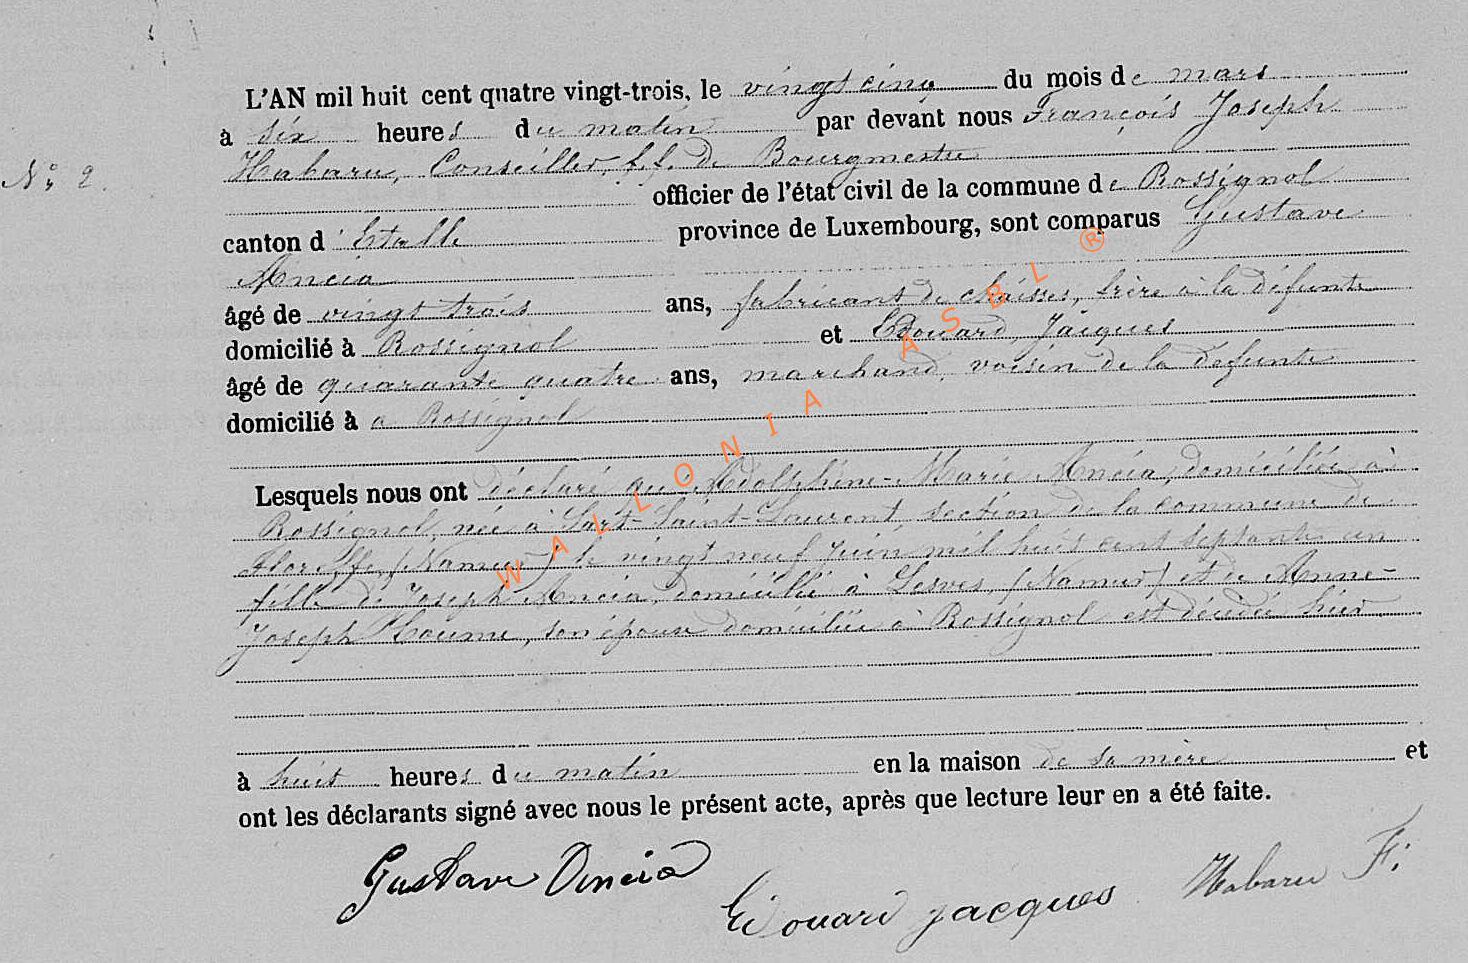 L'AN mil huit cent quatre vingt-trois, le vingt cinq du mois de mars
à six heures du matin par devant nous François Joseph
Habaru, Conseiller, f.f. de Bourgmestre
N° 2.
officier de l'état civil de la commune de Rossignol
canton d'Etalle province de Luxembourg, sont comparus Gustave
Ancia
âgé de vingt trois ans, fabricant de chaises, frère à la défunte
domicilié à Rossignol et Edouard Jacques
âgé de quarante quatre ans, marchand, voisin de la défunte
domicilié à a Rossignol
Lesquels nous ont déclaré que Adolphine-Marie Ancia, domiciliée à
Rossignol, née à Sart-Saint-Laurent, section de la commune de
Floreffe, (Namur) le vingt neuf juin mil huit cent septante un
fille de Joseph Ancia, domicilié à Lesves, (Namur) et de Anne-
Joseph Houme, son épouse domiciliée à Rossignol est décédée hier
à huit heures du matin en la maison de sa mère et
ont les déclarants signé avec nous le présent acte, après que lecture leur en a été faite.
Gustave Ancia
Edouard Jacques
Habaru F.
WALLONIA ASBL ®